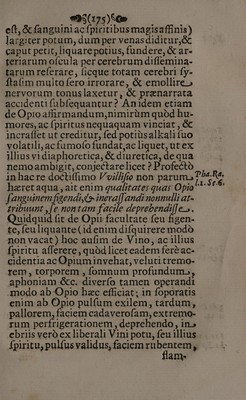 (175)
est, & sanguini ac spiritibus magis affinis)
largiter potum, dum per venas diditur, &
caput petit, liquare potius, fundere, & ar-
teriarum oscula per cerebrum dissemina-
tarum reserare, sicque totam cerebri sy-
stasim multo sero irrorare, & emollire
nervorum tonus laxetur, & prænarrata
accidenti subsequantur? An idem etiam
de Opio affirmandum, nimirùm quòd hu-
mores, ac spiritus nequaquam vinciat, &
incrasset ut creditur, sed potiùs alkali suo
volatili, ac fumoso fundat, ac liquet, ut ex
illius vi diaphoretica, & diuretica, de qua
nemo ambigit, conjectare licet? Profectò
in hac re doctissimo Vvillisio non parum
hæret aqua, ait enim qualitates quas Opio
sanguinem figendi, & incrassandi nonnulli at-
tribuunt, se non tam facile deprehendisse.
Quidquid sit de Opii facultate seu figen-
te, seu liquante (id enim disquirere modò
non vacat) hoc ausim de Vino, ac illius
spiritu asserere, quòd licet eadem ferè ac-
cidentia ac Opium invehat, veluti tremo-
rem, torporem, somnum profundum,
aphoniam &c. diverso tamen operandi
modo ab Opio hæc efficiat; in soporatis
enim ab Opio pulsum exilem, tardum,
pallorem, faciem cadaverosam, extremo-
rum perfrigerationem, deprehendo, in
ebriis verò ex liberali Vini potu, seu illius
spiritu, pulsus validus, faciem rubentem,
flam-
Pha. Ra.
l.1. Se. 6.